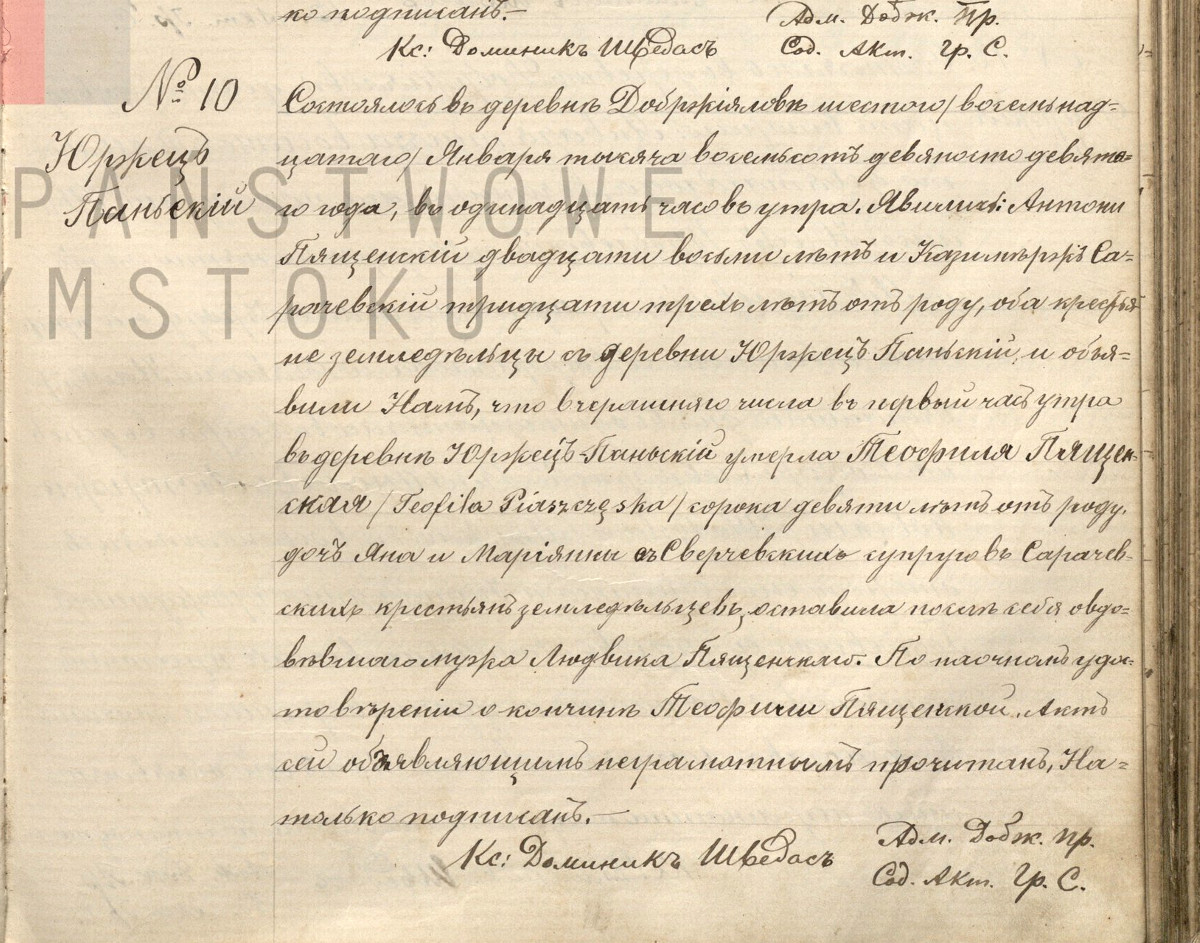 ко подписанъ.—
Адм. Добж. Пр.
Кс: Доминикъ Шведасъ
Сод. Акт. Гр. С.
№ 10
Юржецъ
Паньскій
PAŃSTWOWE
YMSTOKU
Состоялось въ деревнѣ Добржіяловѣ шестого/восемьнад=
цатаго/ Января тысяча восемьсотъ девяносто девято=
го года, въ одинадцать часовъ утра. Явились: Антони
Пященскій двадцати восьми лѣтъ и Казимѣржъ Са=
рачевскій тридцати трехъ лѣтъ отъ роду, оба крестья
не земледѣльцы съ деревни Юржецъ Паньскій, и объя=
вили Намъ, что вчерашняго числа въ первый часъ утра
въ деревнѣ Юржецъ-Паньскій умерла Теофиля Пящен=
ская /Teofila Piaszczęska/ сорока девяти лѣтъ отъ роду.
дочь Яна и Маріянны съ Сверчевскихъ супруговъ Сарачев=
скихъ крестьянъ земледѣльцевъ, оставила послѣ себя овдо=
вѣвшаго мужа Людвика Пященскаго. По наочномъ удос=
товѣреніи о кончинѣ Теофили Пященской, Актъ
сей объявляющимъ неграмотнымъ прочитанъ, На=
ми только подписанъ.—
Кс: Доминикъ Шведасъ
Адм. Добж. пр.
Сод. Акт. Гр. С.